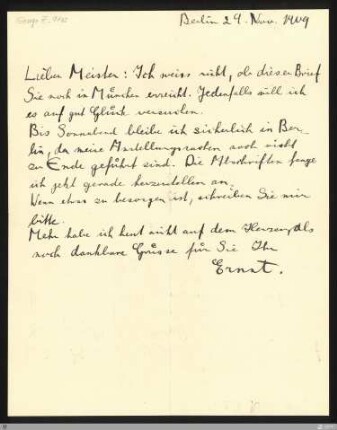 Berlin 29. Nov. 1909
Lieber Meister: Ich weiss nicht, ob dieser Brief
Sie noch in München erreicht. Jedenfalls will ich
es auf gut Glück versuchen.
Bis Sonnabend bleibe ich sicherlich in Ber-
lin, da meine noch nicht
zu Ende geführt sind. Die Abschriften fange
ich jetzt gerade herzustellen an.
Wenn etwas zu besorgen ist, schreiben Sie mir
bitte.
Mehr habe ich heut nicht auf dem Herzen, als
noch dankbare Grüsse für Sie Ihr
Ernst.